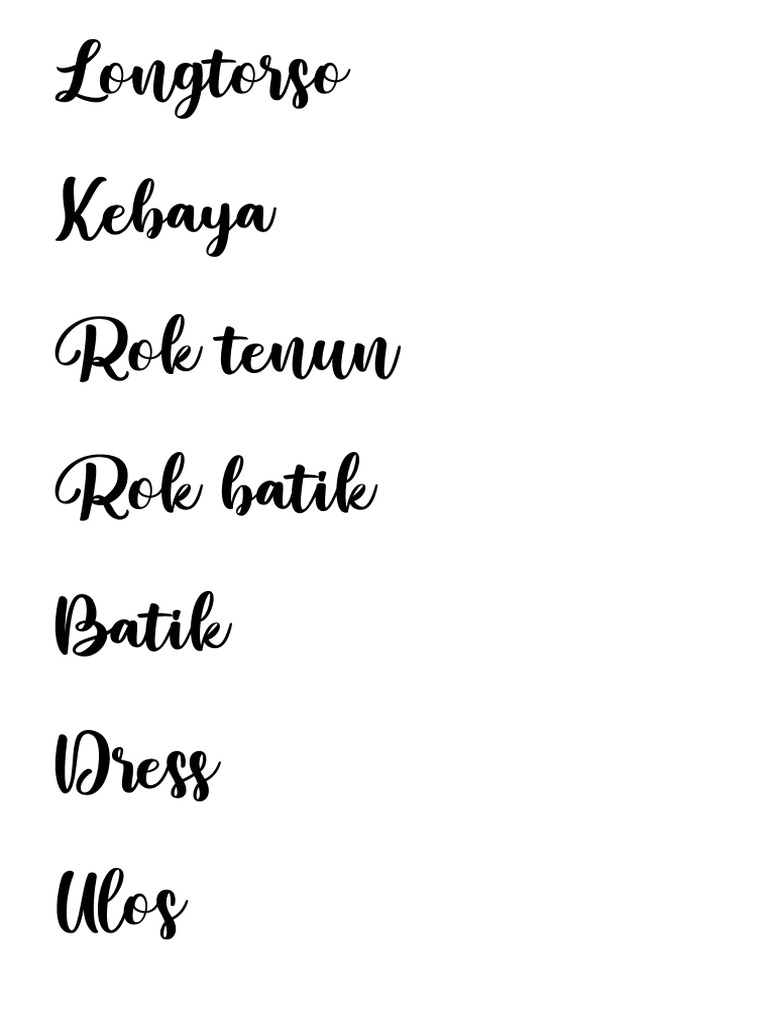 Longtorso
Kebaya
Rok tenun
Rok batik
Batik
Dress
Ulos